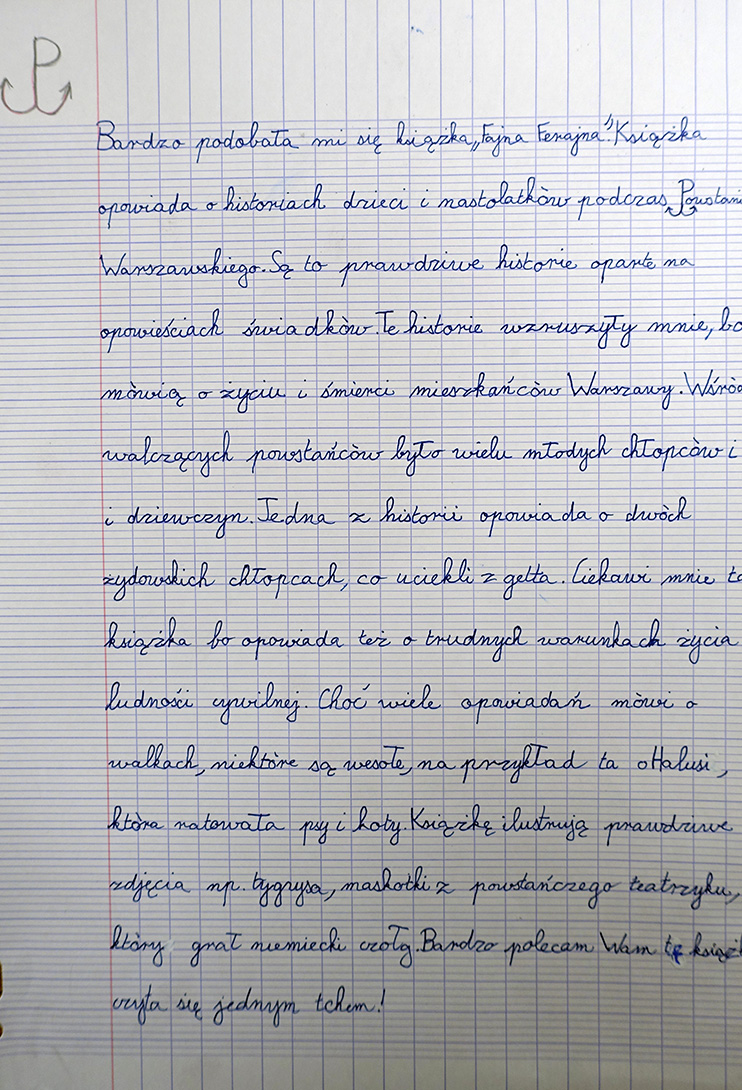 Bardzo podobała mi się książka „Fajna Ferajna”. Książka
opowiada o historiach dzieci i nastolatków podczas Powstani
Warszawskiego. Są to prawdziwe historie oparte na
opowieściach świadków Te historie wzruszyły mnie, bo
mówią o życiu i śmierci mieszkańców Warszawy. Wśród
walczących powstańców było wielu młodych chłopców i
i dziewczyn. Jedna z historii opowiada o dwóch
żydowskich chłopcach, co uciekli z getta. Ciekawi mnie ta
książka bo opowiada też o trudnych warunkach życia
ludności cywilnej. Choć wiele opowiadań mówi o
walkach, niektóre są wesołe, na przykład ta o Halusi,
która ratowała psy i koty. Książkę ilustrują prawdziwe
zdjęcia np. tygrysa, maskotki z powstańczego teatrzyku,
który grał niemiecki czołg. Bardzo polecam Wam tę książk
czyta się jednym tchem!